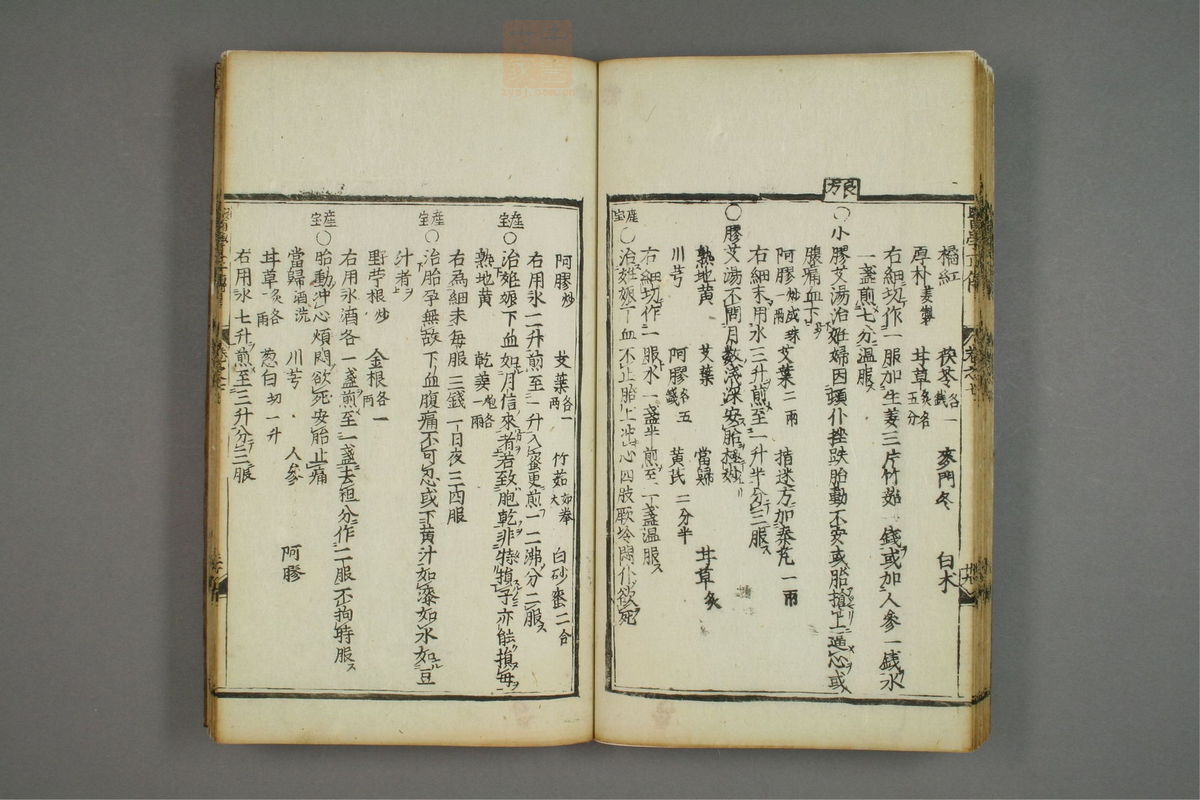 橘紅　茯苓各一錢　麥門冬　白朮
厚朴姜製　甘草炙各五分
右細切作一服加生姜三片竹茹一錢或加人參一錢水
一盞煎七分溫服
良方
○小膠艾湯治妊婦因頭仆挫跌胎動不安或胎搶上逼心或
腹痛血下
阿膠炒成珠一兩　艾葉二兩　指迷方加秦艽一兩
右細末用水三升煎至一升半分三服
○膠艾湯不問月數淺深安胎極妙
熟地黄　艾葉　當歸　甘草炙
川芎　阿膠各五錢　黄芪二分半
右細切作一服水一盞半煎至一盞溫服
産宝
○治妊娠下血不止胎上冲心四肢厥冷悶仆欲死
阿膠炒　艾葉各一兩　竹茹如拳大　白砂蜜二合
右用水二升煎至一升入蜜更煎一二沸分二服
産宝
○治妊娠下血如月信來者若致胞乾非特損子亦能損毎
熟地黄　乾姜炮各一兩
右為細末每服三錢一日夜三四服
産宝
○治胎孕無故下血腹痛不可忍或下黄汁如漆如水如豆
汁者
野苧根炒　金根各一兩
右用水酒各一盞煎至一盞去柤分作二服不拘時服
産宝
○胎動沖心煩悶欲死安胎止痛
當歸酒洗　川芎　人參　阿膠
甘草炙各一兩　葱白切一升
右用水七升煎至三升分三服